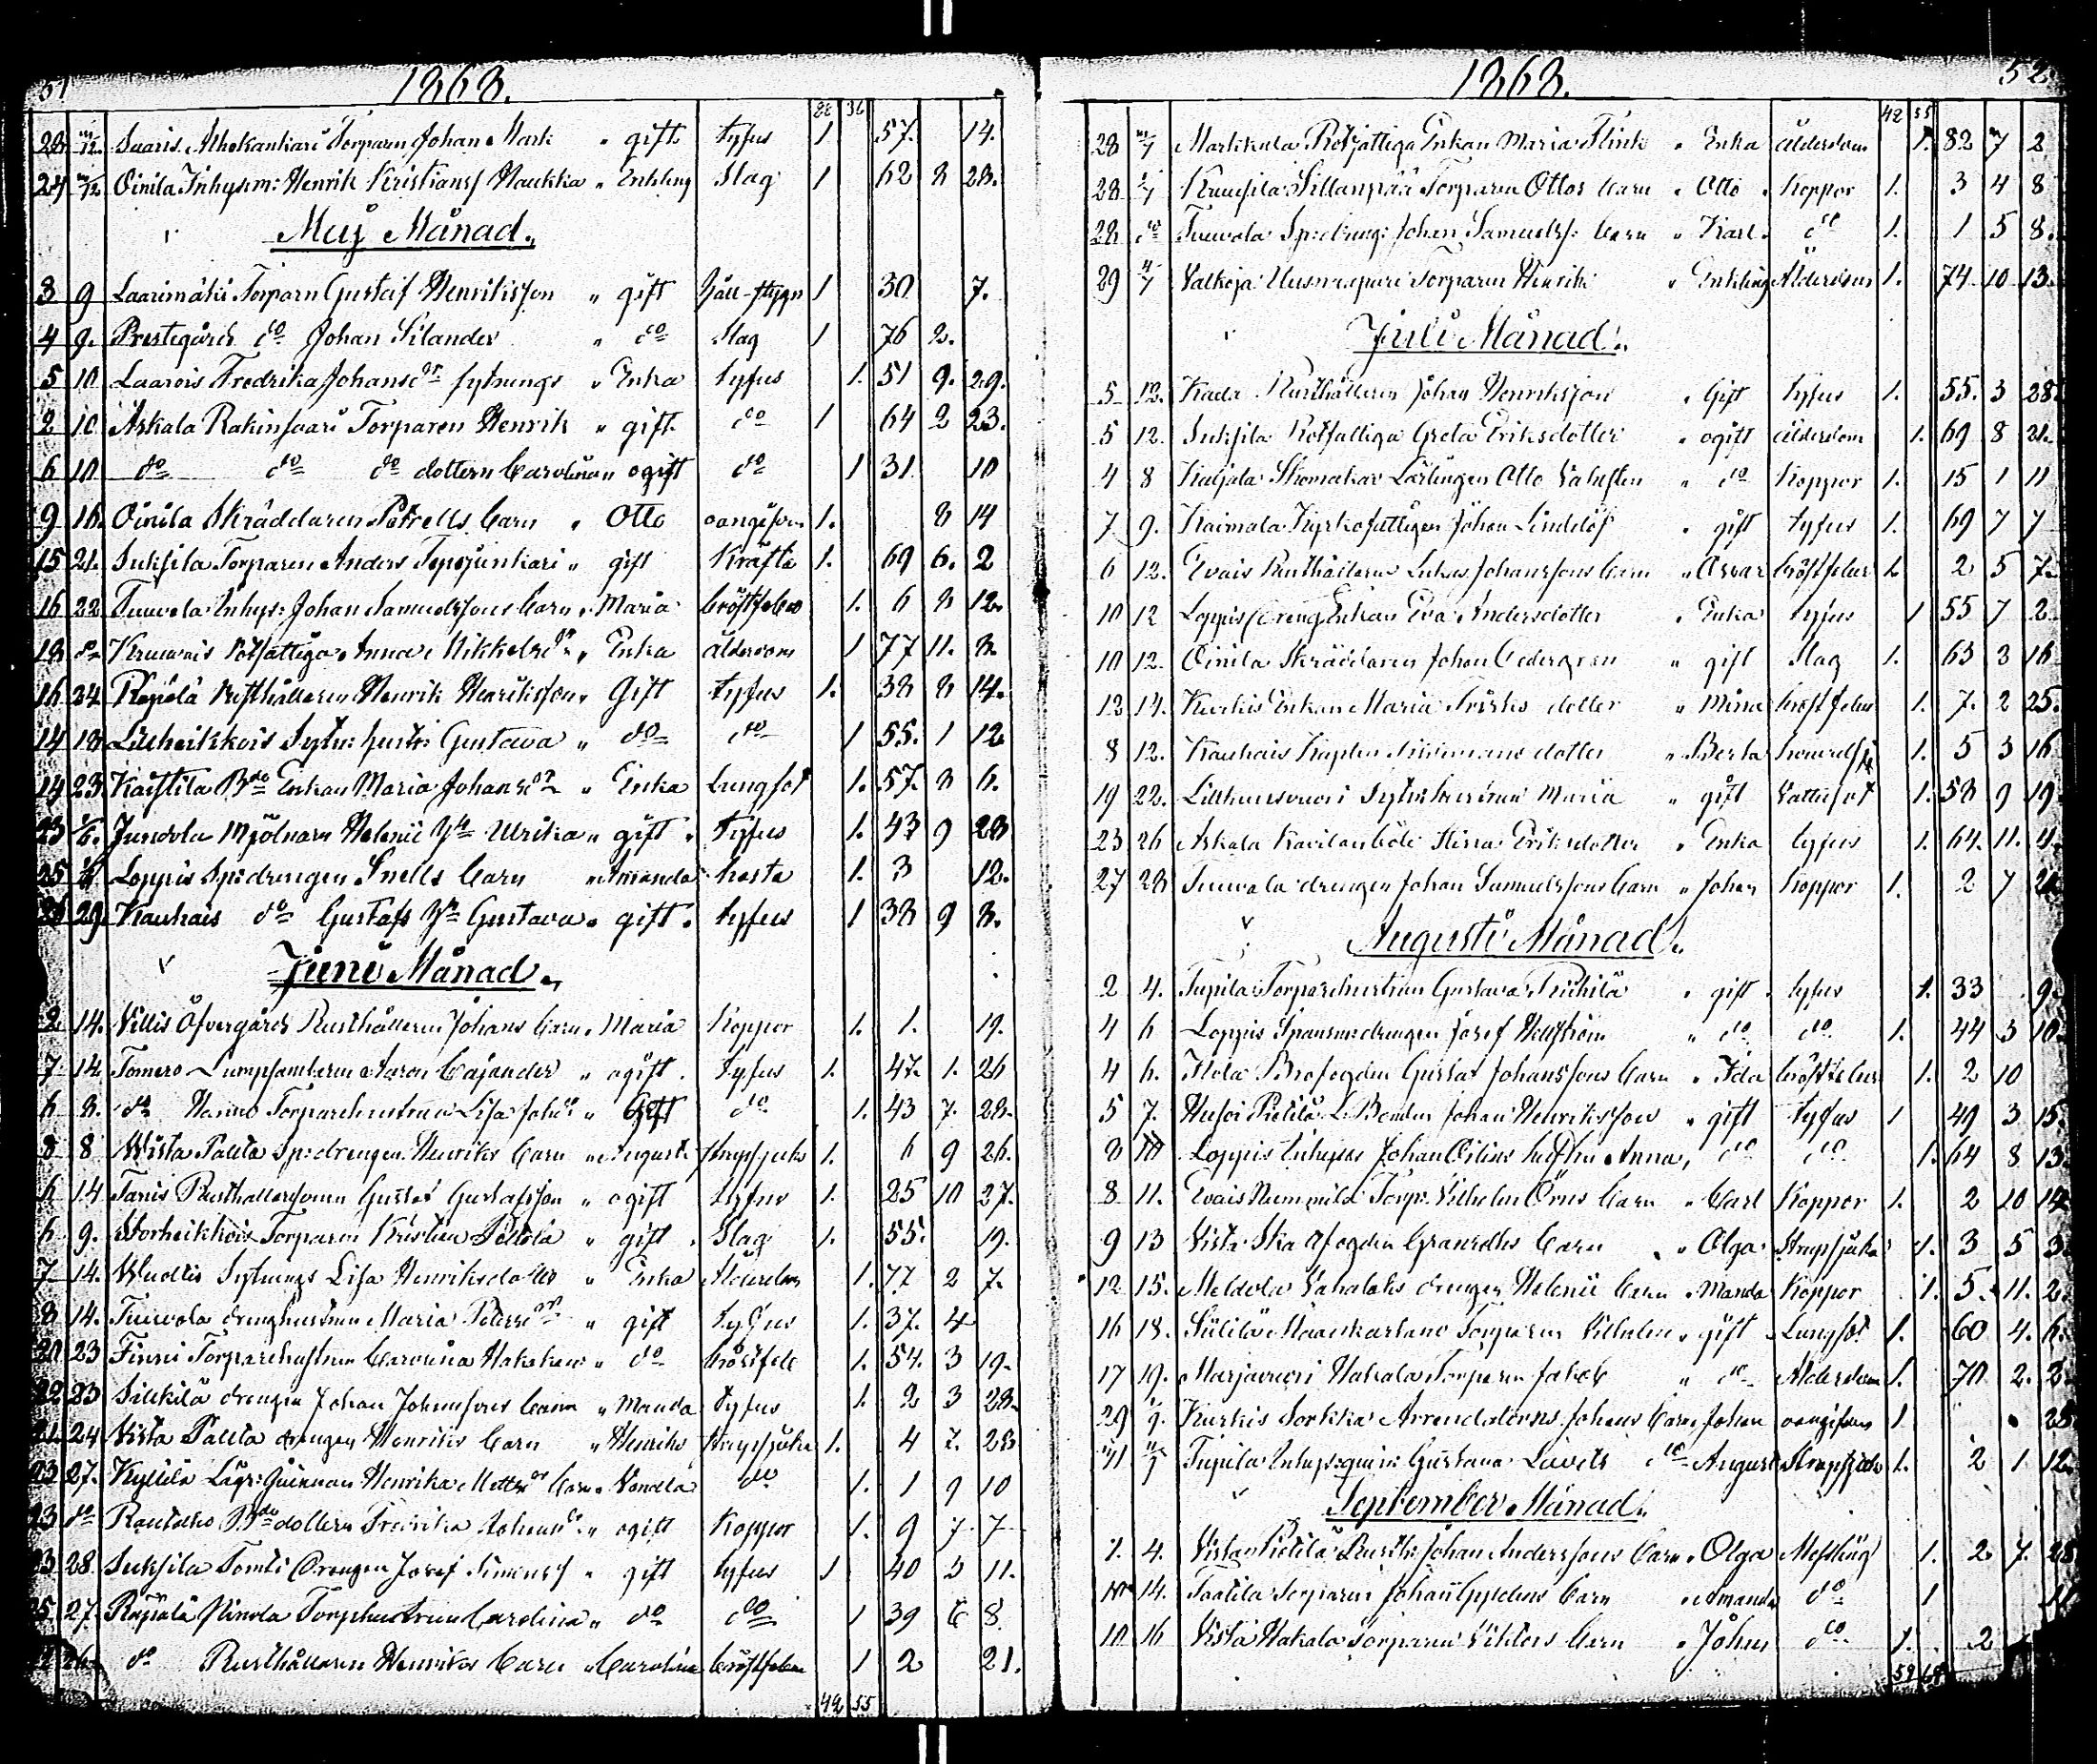 51 1868.
28 36
28 m/12. Suaris Ahokankari Torparen Johan Mark " gift tyfus 1 57. 14.
24 m/12 Oinila Inhysm: Henrik Kristianss Haukka " Enkling Slag 1 62 8 28.
Maj Månad.
3 9 Laarimäki Torparn Gustaf Henriksson " gift Håll-stygn 1 30 7.
4 9. Prestegårds do Johan Silander " do Slag 1 76 2.
5 10 Laarois Fredrika Johansdr sytnings " Enka tyfus 1. 51 9. 29.
2 10 Askala Rakinsaari Torparen Henrik " gift do 1 64 2 23.
6 10 do do do dottern Carolina " ogift do 1 31. 10
9 16. Oinila Skräddaren Petrells barn " Otto oangifven 1. 8 14
15 21. Suksila Torparen Anders Syvojunkari " gift Kräfta 1. 69 6. 2
16 22 Tuuvola Inhys: Johan Samuelssons barn " Maria bröstfeber 1. 6 8 12.
18 do Kruuvais Rotfattiga Anna Mikkelsdr " Enka ålderdom 1 77 11. 8.
16 24 Räpälä Rusthållaren Henrik Henriksson " Gift tyfus 1. 38 8 14.
14 18 Lillheikkois Sytn: hustr: Gustava " do do 1 55. 1 12
14 23. Kaistila Bde Enkan Maria Johansdr " Enka Lungsot 1. 57. 8 6.
23 1/6. Junvola Mjölnarn Helenii Hu Ulrika " gift tyfus 1. 43 9 28
25 Loppis Sp: drengen Snells barn " Amanda hosta 1. 3 12.
29. Kauhais do Gustafs Hu Gustava " gift tyfus 1 38 9 8.
Juni Månad.
2 14. Villis Öfvergårds Rusthållaren Johans barn " Maria Koppor 1. 1. 19.
7 14. Tomero Lumpsamlaren Aaron Cajander " ogift tyfus 1. 47. 1. 26
6 8. do Hannu Torparehustrun Lisa Johsdr " Gift do 1. 43 7. 28.
8 8 Vista Paltta Sp: drengen Henriks barn " August strupsjuka 1. 6 9 26.
6 14 Tanis Rusthållarsonen Gustaf Gustafsson " ogift tyfus 1. 25 10 27.
6 9. Storheikkois Torparen Kristian Peltola " gift Slag 1. 55. 19.
7 14. Sytnings Lisa Henriksdotter " Enka Ålderdom 1. 77 2 7.
8 14. Tuuvola drenghustrun Maria Petersdr " gift tyfus 1. 37. 4
20 23 Finni Torparehustrun Carolina " do bröstfeb 1. 54. 3 19.
22 23 Sillkilä drengen Johan Johanssons barn " Manda tyfus 1. 2 3 28.
21. 24 Vista Paltta drengen Henriks barn " Henriks strupsjuka 1. 4 7. 28
23 27. Kyllilä Lägr: Qvinnan Henrika Mattsdr barn " Vendla do 1. 1 9 10
23 do Rautalho Bde dottern Fredrika Johansdr " ogift Koppor 1. 9 7 7
23 28 Suksila Tomti Drengen Josef Simonss " gift tyfus 1 40 3 11.
25 27. Räpälä Ninola Torphustrun Carolina " do do 1 39 6 8.
26 do Rusthållaren Henriks barn " Carolina bröstfeber 1 2 21.
42 55
1868. 52
42 55
28 m/7 Markkula Rotfattiga Enkan Maria Flink " Enka ålderdom 1. 82 7 2
28 1/7 Kuusila Sillanpää Torparen Ottos barn " Otto Koppor 1. 3 4 8
28 do Tuuvola Sp: dreng: Johan Samuelss: barn " Karl do 1. 1 5 8.
29 4/7 Valkoja Uusnaapuri Torparen Henrik " Enkling Ålderdom 1. 74 10 13.
Juli Månad.
5 12. Kada Rusthållaren Johan Henriksson " Gift tyfus 1. 55. 3 28.
5 12. Suksila Rotfattiga Greta Eriksdotter " ogift ålderdom 1. 69 8 21.
4 8 Katjala Skomakar Lärlingen Otto Vahlsten " do Koppor 1. 15 1 11
7 9. Kaimala Kyrkofattigen Johan Lindlöf " gift tyfus 1. 69 7 7
6 12. Evais Rusthållaren Lukas Johanssons barn " Oskar bröstfeber 1. 2 5 7.
10 12 Loppis Drengenkan Eva Andersdotter " Enka tyfus 1 55 7 2
10 12. Oinila Skräddaren Johan Cedergren " gift Slag 1. 63 3 16
13 14. Kurkis Enkan Maria dotter " Mina bröstfeber 1. 7. 2 25.
8 12. Kauhais Kaplan dotter " Berta 1. 5 3 16
19 22. Maria " gift Vattusot 1. 58 9 19
23 26 Askala Stina Eriksdotter " Enka tyfus 1. 64. 11. 4.
27 28 Tuuvola drengen Johan Samuelssons barn " Johan Koppor 1. 2 7
Augusti Månad.
2 4. Tupila Torparehustrun Gustava " gift tyfus 1. 33 9.
4 6 Loppis drengen Josef Hellström " do do 1. 44 3 10.
4 6. Flola Brofogden Gustaf Johanssons barn " Ida bröstfeber 1. 2 10
5 7. Heusoi Pietilä L: Bonden Johan Henriksson " gift tyfus 1 49 3 15.
8 10 Loppis Inhyses Johan Oilins hustru Anna, do do 1. 64 8 13.
8 11. Evais Nummila Torp: Vilhelm Örns barn " Carl Koppor 1. 2 10 14
9 13 Vista Granroths barn " Olga Strupsjuka 1. 3 5 3.
12 15. Meldola Vahalahs drengen Helenii barn " Manda Koppor 1. 5. 11. 2.
16 18. Siililä Maankartano Torparen Vilhelm " gift Lungsot 1. 60 4. 6.
17 19. Marjavuori Hakala Torparen Jakob " do Ålderdom 1. 70 2. 2
29 1/9. Kurkis Sorkka Arrendatorns Johans barn Johan oangifven 1. 28
31 Tupila Inhys: qvin: Gustava Lavels do August Strupsjuka 1. 2 1 12.
September Månad.
1. 4. Vista Pietilä Rusth: Johan Anderssons barn " Olga Messling 1. 2. 7. 28
10 14. Taatila Torparen Johan Gyldens barn " Amanda do 1 11
10 16 Vista Hakala Torparen Viktors barn " Johan do 1. 2
59 68